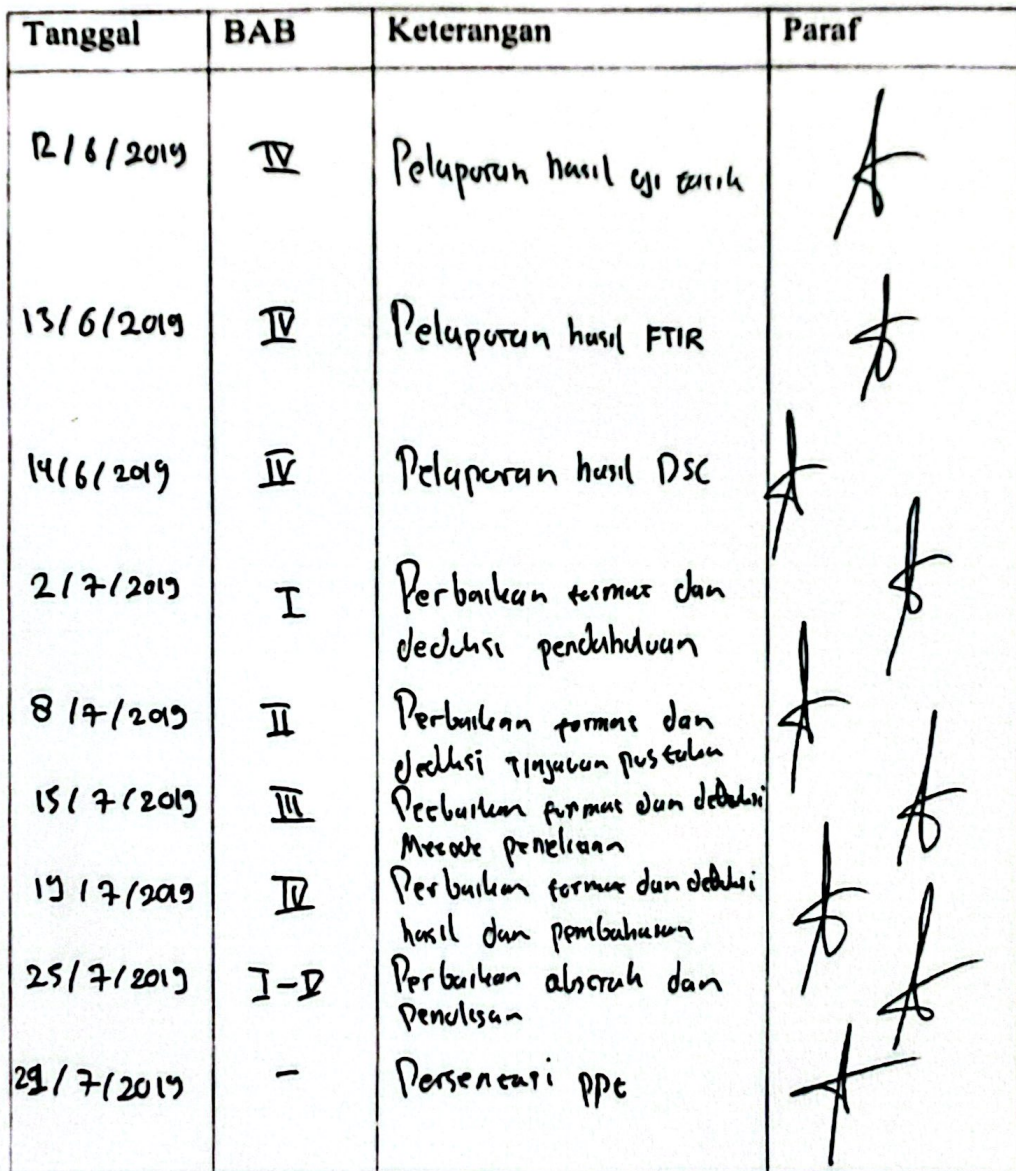 Tanggal BAB Keterangan Paraf
12/6/2019 IV Pelaporan hasil uji tarik
13/6/2019 IV Pelaporan hasil FTIR
14/6/2019 IV Pelaporan hasil DSC
2/7/2019 I Perbaikan format dan
deduksi pendahuluan
8/7/2019 II Perbaikan format dan
deduksi Tinjauan pustaka
15/7/2019 III Perbaikan format dan deduksi
Metode penelitian
19/7/2019 IV Perbaikan format dan deduksi
hasil dan pembahasan
25/7/2019 I-V Perbaikan abstrak dan
Penulisan
/7/2019 - Persentasi ppt